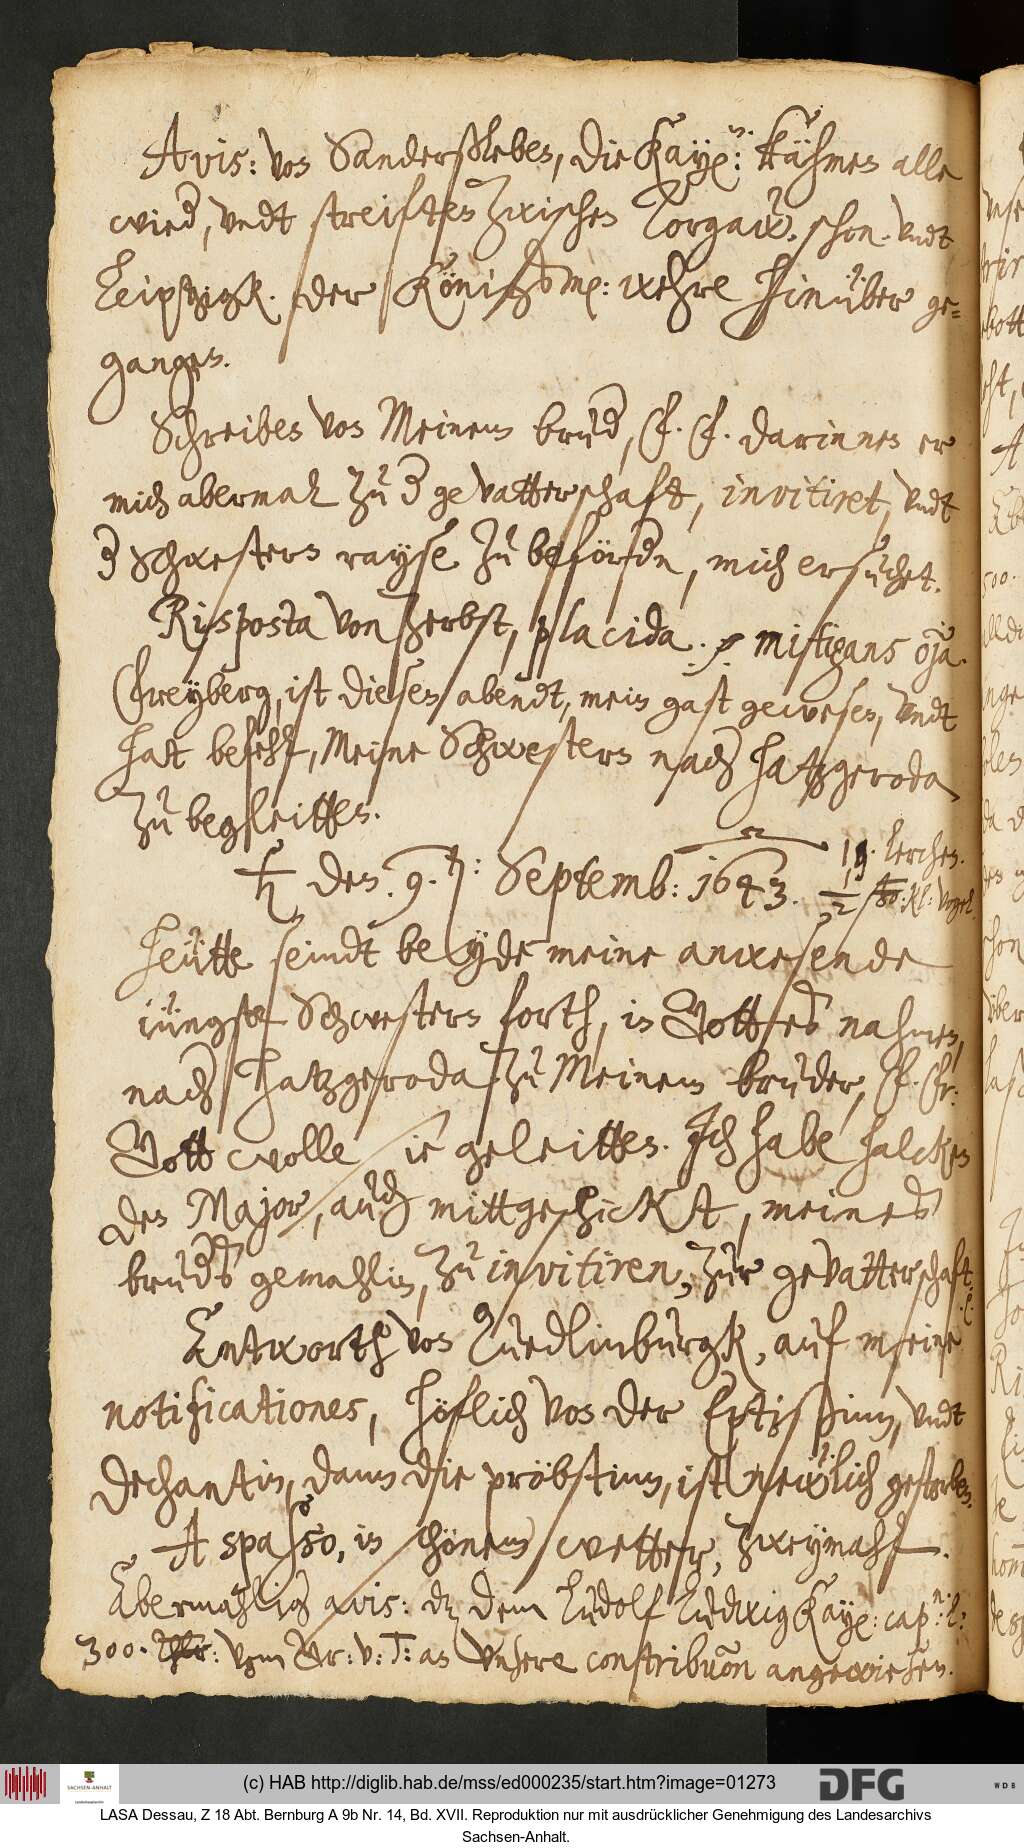 Avis: von Sanderßleben, die Kay: n: kähmen alle
wied, vndt streiften zwischen Torgaw, schon. vndt
Leiptzigk. der Königsm: wehre hinüber ge=
gangen.
Schreiben von Meinem brud, F. F. darinnen er
mich abermal zu d gevatterschaft, invitiret, vndt
d Schwestern rayse zu befördn, mich ersuchet.
Risposta von Zerbst, placida. mitigans
Freyberg, ist diesen abendt, mein gast gewesen, vndt
hat befehl, Meine Schwestern nach Hatzgeroda
zu begleitten.
♄ den. 9. t: Septemb: 1643.
Lerchen.
kl: vogel
Heütte seindt beyde meine anwesende
iüngste Schwestern forth, in Gottes nahmen,
nach Hatzgeroda zu Meinem bruder, F. Fr:
Gott wolle sie geleitten. Ich habe halcken
den Major, auch mittgeschickt, meines
bruds gemahlin, zu invitiren, zur gevatterschaft
Antworth von Quedlinburgk, auf meine
notificationes, höflich von der Eptißinn, vndt
Dechantin, dann die pröbstinn, ist newlich gestorben.
A spasso, in schönem wetter, zweymahl.
Abermahlig avis: dz dem Rudolf Ludwig Kay: cap: n: l:
300. Thlr: vom Gr: v: T: an vnsere contribuōn angewiesen.
(c) HAB http://diglib.hab.de/mss/ed000235/start.htm?image=01273
SACHSEN-ANHALT
DFG
WDB
LASA Dessau, Z 18 Abt. Bernburg A 9b Nr. 14, Bd. XVII. Reproduktion nur mit ausdrücklicher Genehmigung des Landesarchivs
Sachsen-Anhalt.